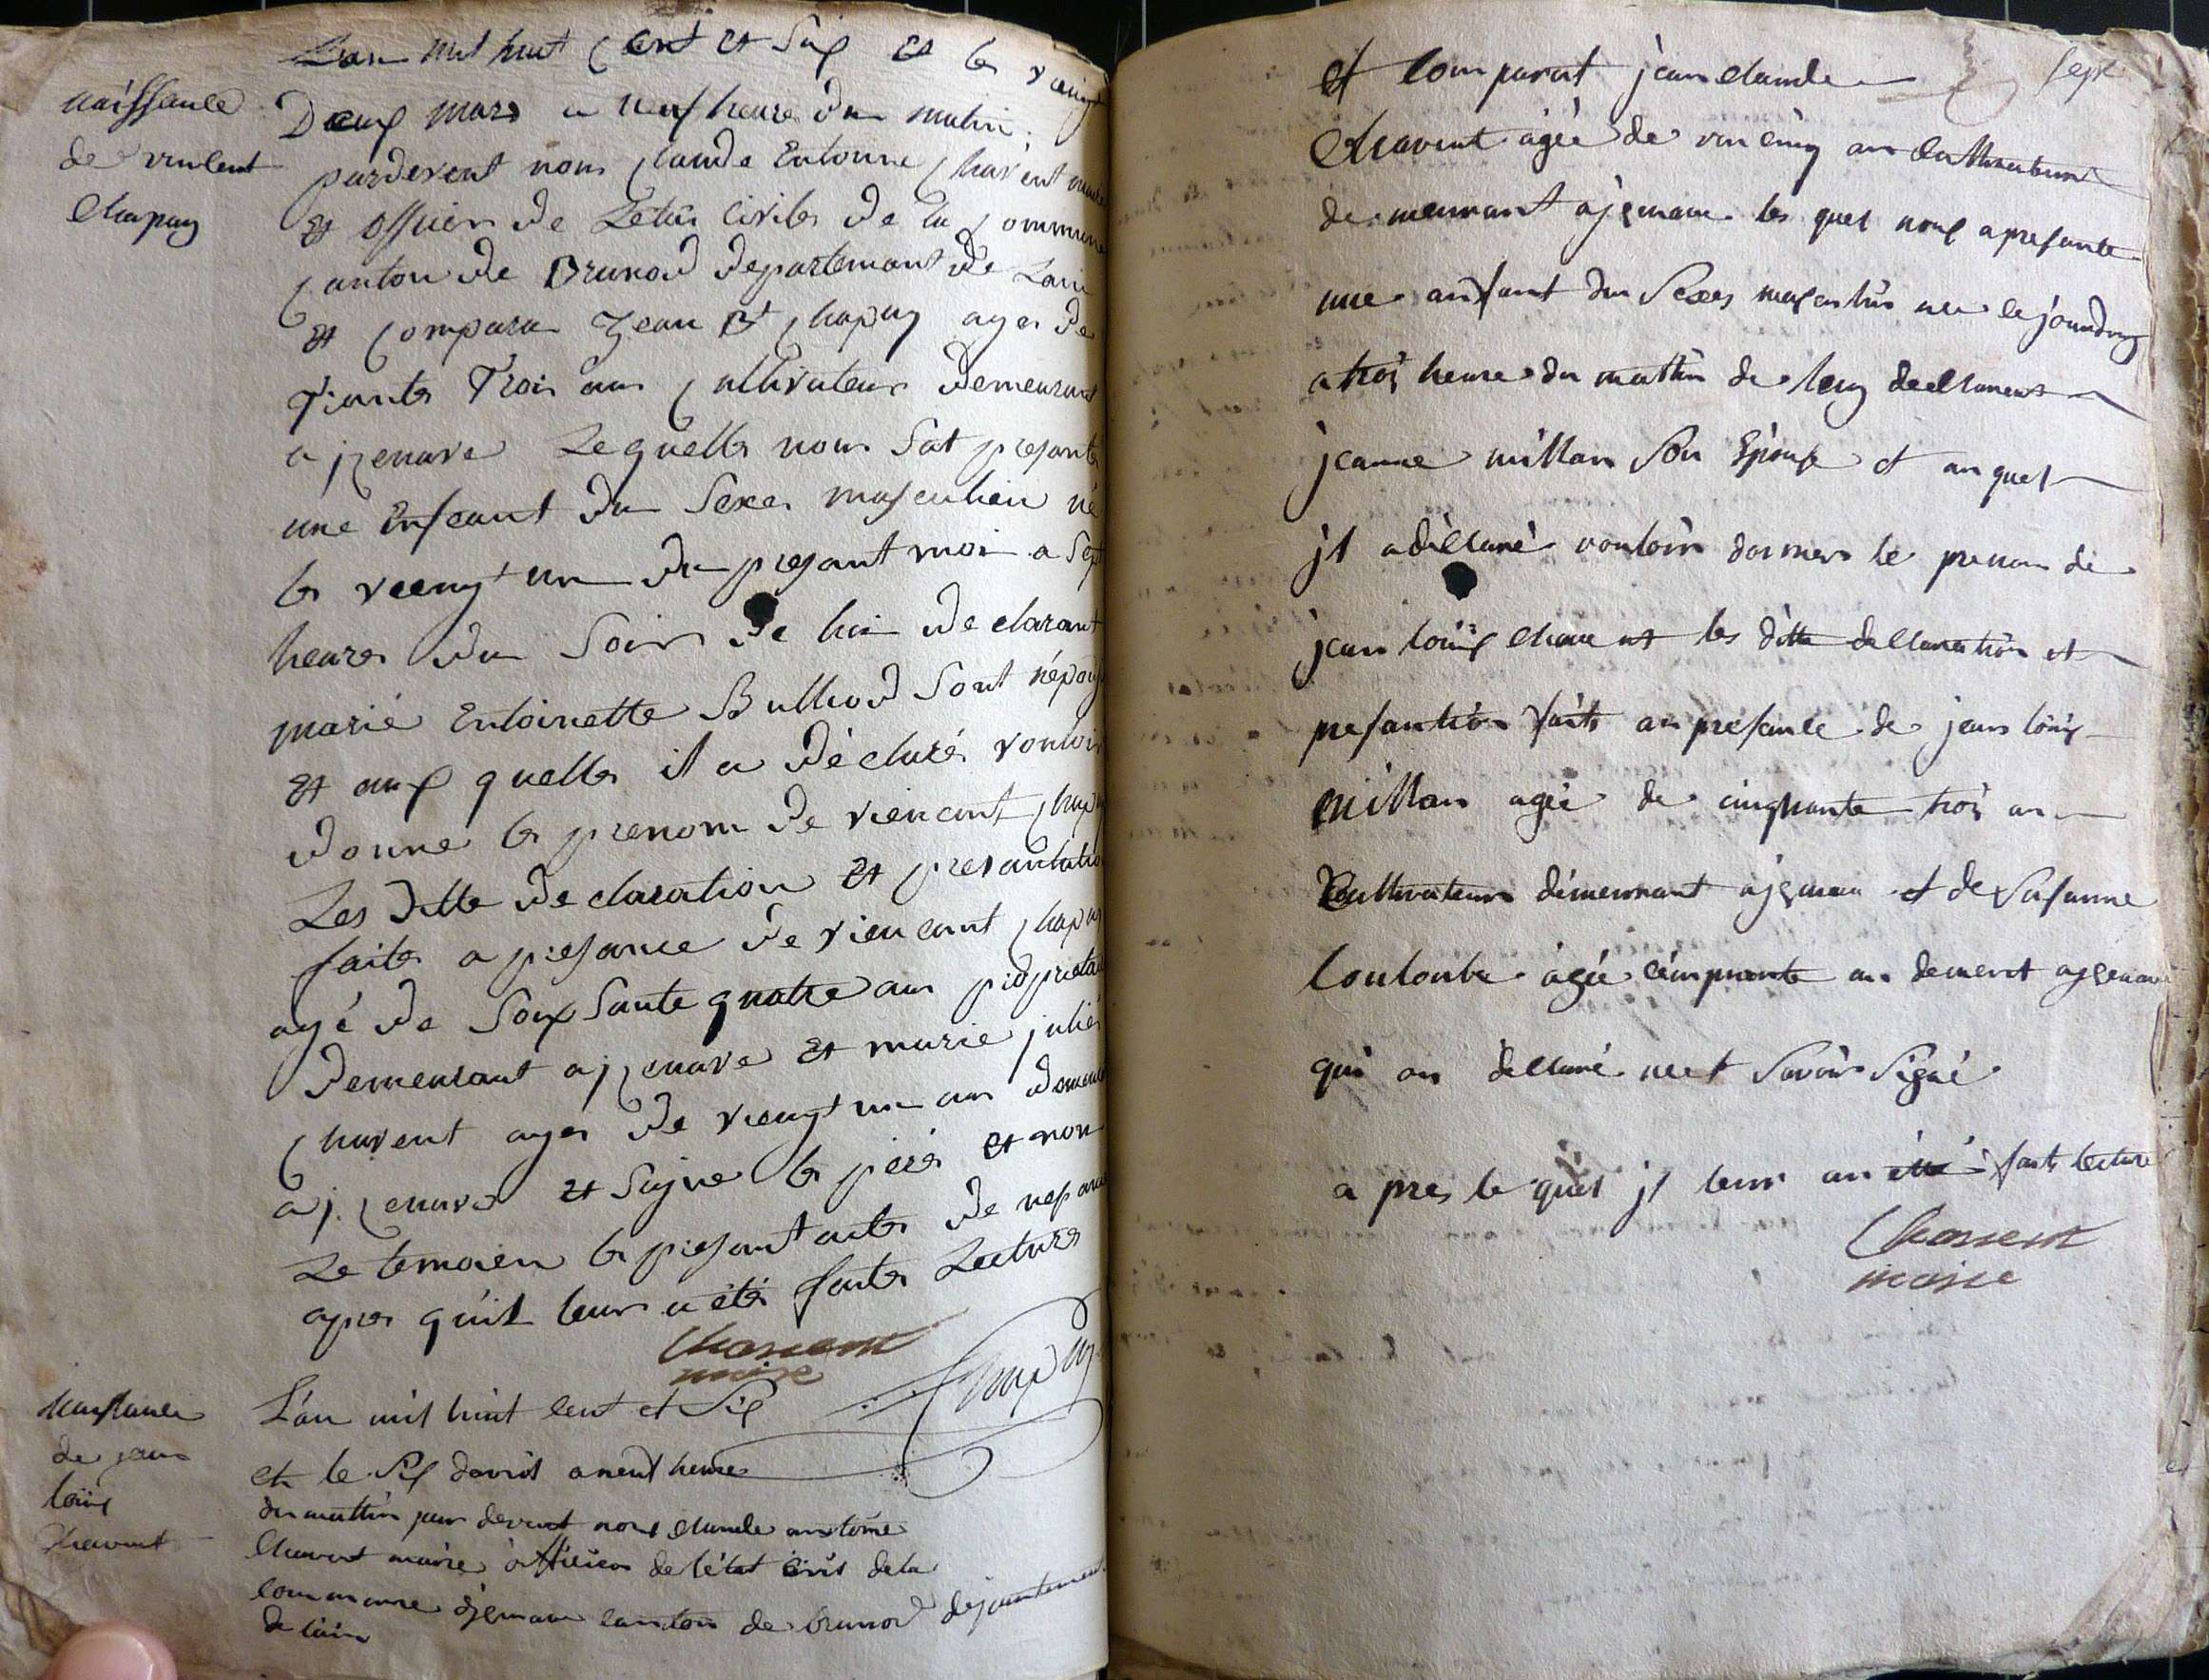 L'an mil huit Cent et Six et le vaingt
naissance
de vincent
Chapuy
Deux mars a neuf heure du matin
pardevent nous Claude Entonne Chavent maire
et offiier de Letat Civile de la Commune
Canton de Brunod Departemant de Lain
et Compara Jean Bt Chapuy ages de
Trante Trois ans Cultivateur demeurant
a jzenave Le quelle nous Sat presante
une Enfeant du Sexe masculein né
le veengt un du presant moi a Sept
heures du Soir de lui de clarant
marie Entoinette Bulliod Sont népouse
et aux quelle il a déclaré vouloir
donne le prenom de viencent Chapuy
Les ditte de claration et presantation
faite a presance de viencent Chapuy
agé de Soix Sante quatre ans propriétaire
demeurant a jzenave et marie julié
Chavent ages de viengt un ans demeure
a jzenave et Signe le père et non
Le temoien le presant acte de nepance
apres quit leur a été faite Lecture
Chavent
maire
Chapuy
naissance
de jean
loüis
Chavent
L'an mil huit cent et Six
et le Six avril a neuf heure
du mattin par devent nous Claude antoine
Chavent maire officier de l'état civil de la
commune djzenave canton de brunod departement
de lain
Sept
et comparut jean claude
Chavent agée de vin cinq an cultivateur
demeurant a jzenave le quel nous a presante
une anfant du Sexes masculin né le jourduy
a troi heure du mattin de luy declarant
jeanne millan Son Epouse et au quel
jl a déclaré vouloir donner le prenom de
jean loüis chavent les ditte declaration et
presantion faite an presance de jean loüis
millan agée de cinquante troi an
Cultivateur demeurant a jzenave et de Susanne
Coulombe agée cinquante an demeret a jzenave
qui on déclaré nest Savoir Signé
a pres le quel jl leur an été faite lecture
Chavent
maire